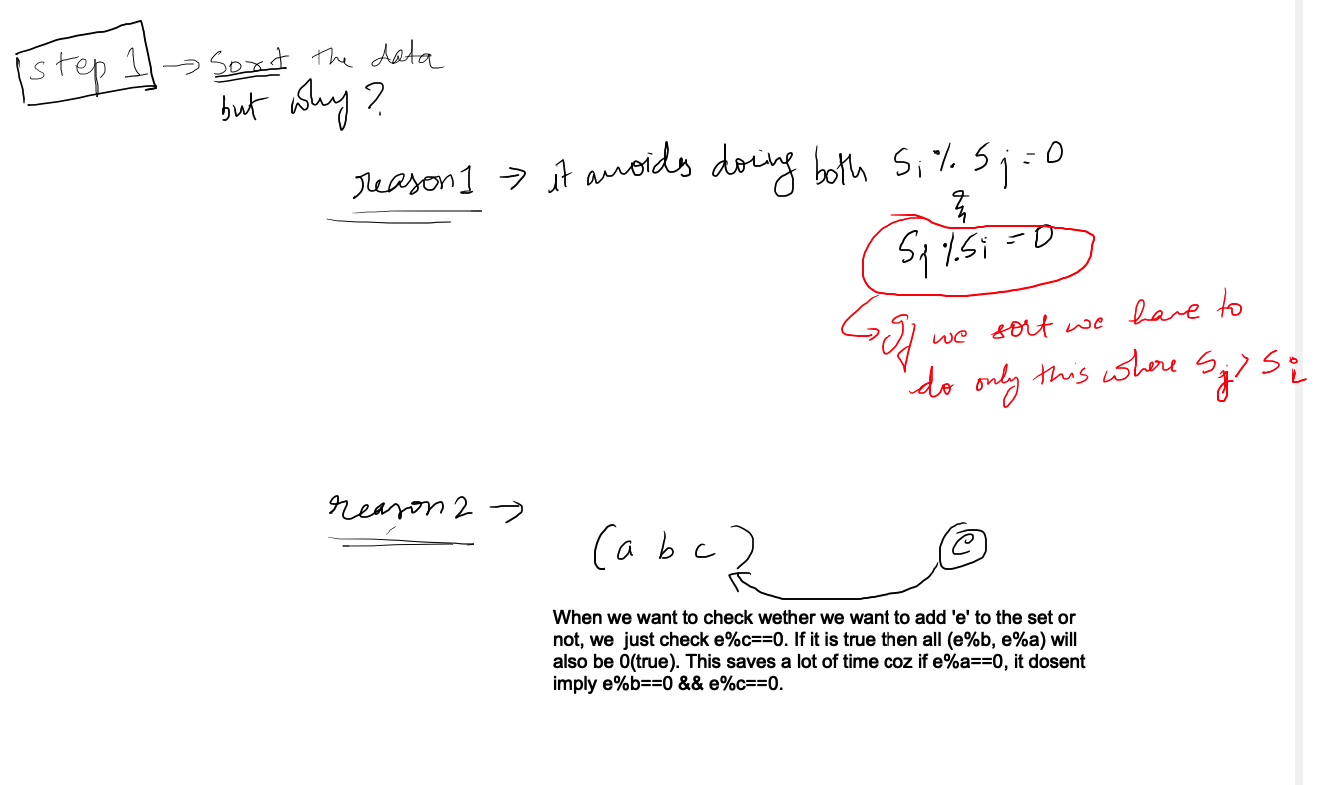 step 1 → Sort the data
but why?
reason 1 → it avoids doing both Si % Sj = 0
&
Sj % Si = 0
↳ If we sort we have to
do only this where Sj > Si
reason 2 →
(a b c) e
When we want to check wether we want to add 'e' to the set or
not, we just check e%c==0. If it is true then all (e%b, e%a) will
also be 0(true). This saves a lot of time coz if e%a==0, it dosent
imply e%b==0 && e%c==0.